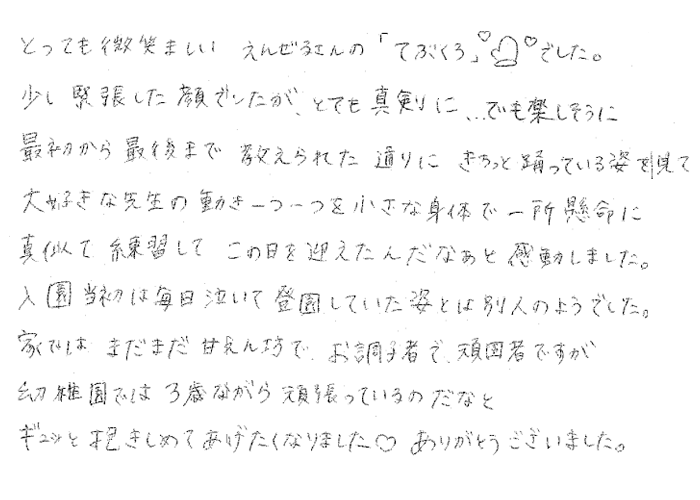 とっても微笑ましい えんぜるさんの「てぶくろ」♡♡でした。
少し緊張した顔でしたが、とても真剣に…でも楽しそうに
最初から最後まで 教えられた通りに きちっと踊っている姿を見て
大好きな先生の動き一つ一つを小さな身体で一所懸命に
真似て練習して この日を迎えたんだなぁと感動しました。
入園当初は毎日泣いて登園していた姿とは別人のようでした。
家では まだまだ 甘えん坊で、お調子者で、頑固者ですが
幼稚園では 3歳ながら頑張っているのだなと
ギュッと抱きしめてあげたくなりました♡ ありがとうございました。